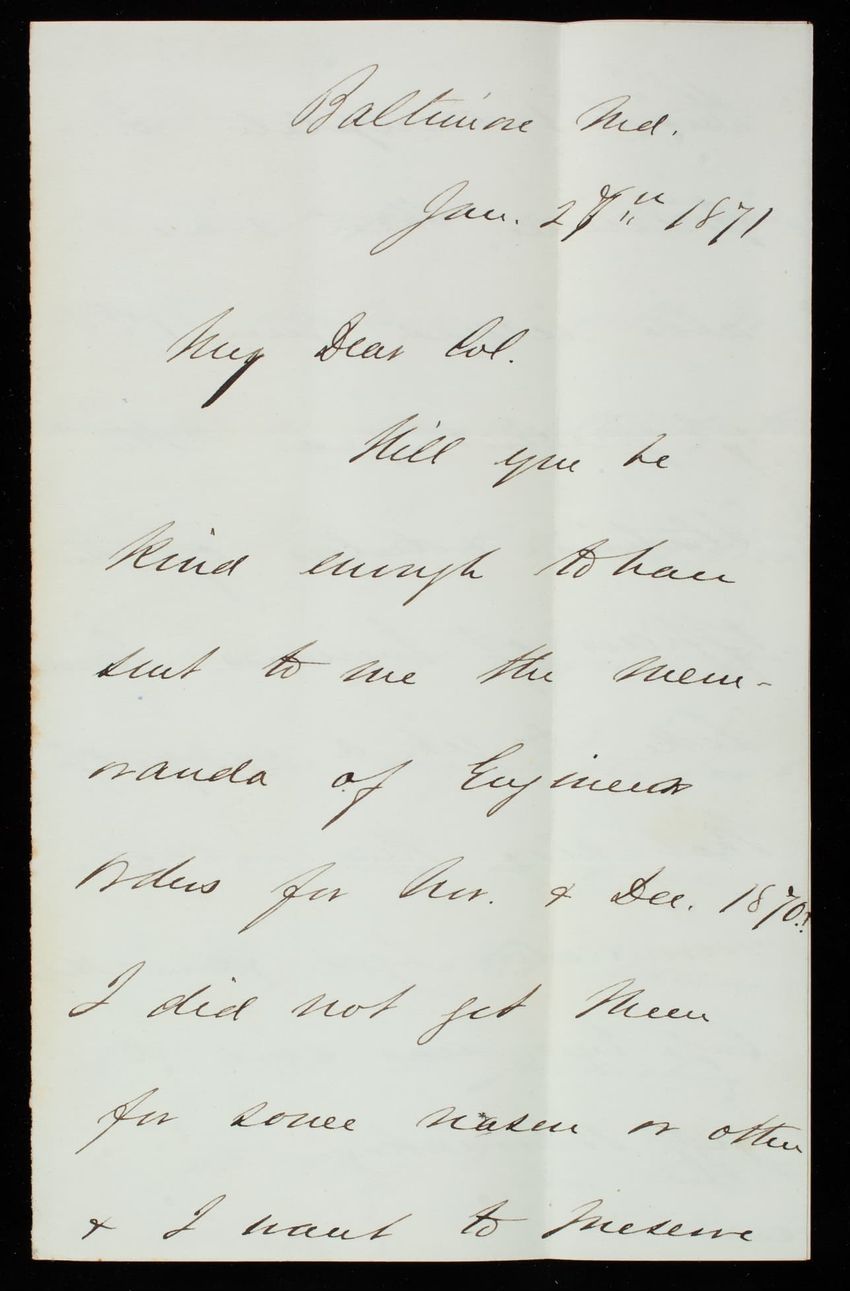 Baltimore Md.
Jan. 1871
My Dear Col.
Will you be
kind enough to have
sent to me the mem-
oranda of Engineer
orders for Nov. & Dec. 1870.
I did not get them
for some reason or other
& I want to preserve